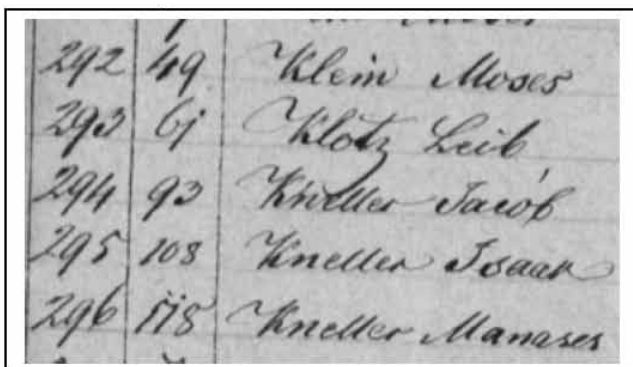 292 49 Klein Moses
293 61 Klotz Leib
294 93 Kneller Jacob
295 108 Kneller Isaak
296 118 Kneller Manases